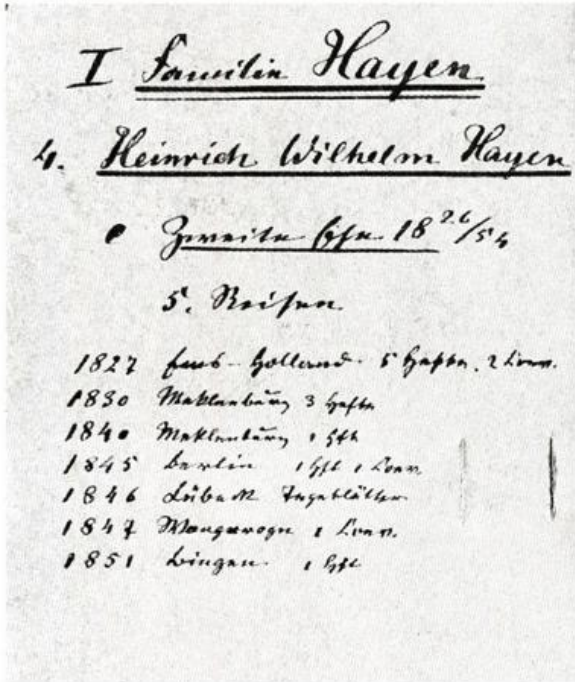 I Familie Hayen
4. Heinrich Wilhelm Hayen
Zweite Ehe 18 26/54
5. Reisen
1827 Ems - Holland 5 Hefte, 2 Conv.
1830 Meklenburg 3 Hefte
1840 Meklenburg 1 Hft
1845 Berlin 1 Hft 1 Conv.
1846 Lübeck Tageblätter
1847 Wangeroge 1 Conv.
1851 Bingen 1 Hft